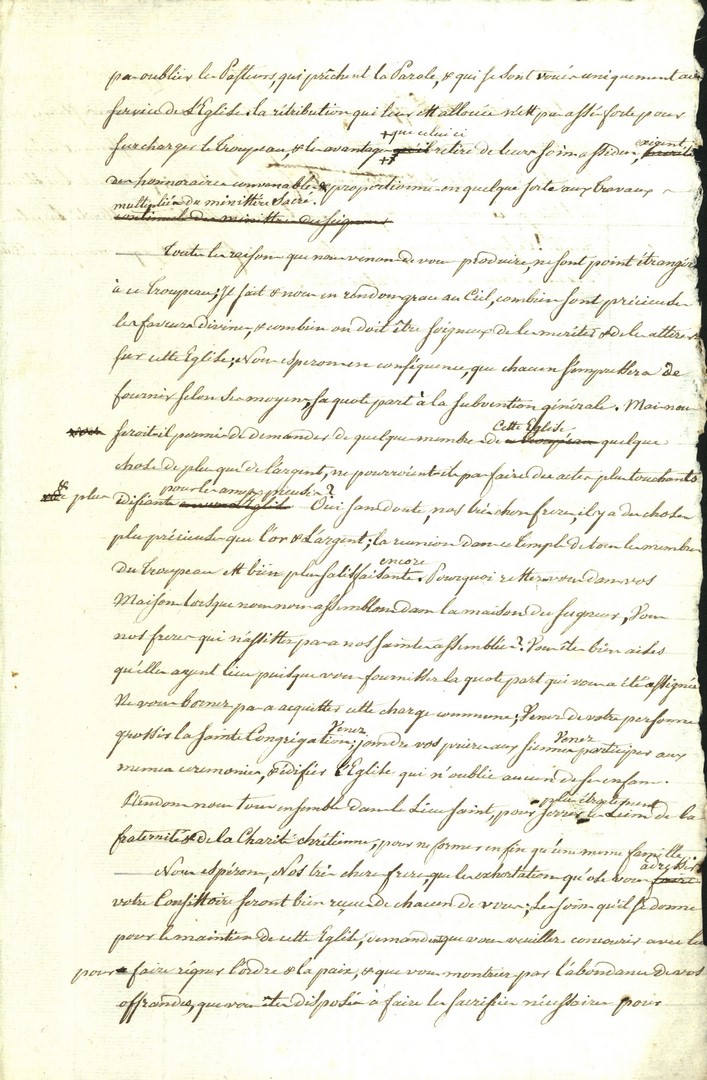 pas oublier les Pasteurs, qui prêchent la Parole, & qui se sont voués uniquement au
service de l'Eglise. la rétribution qui leur est allouée n'est pas assés forte pour
que celui ci
surcharger le troupeau, & les avantages qu'il retire de leurs soins assidus, exigent
des honnoraires convenables & proportionnés en quelque sorte aux travaux
multipliés du ministère Sacré.
continuels des ministres du seigneur
Toutes les raisons que nous venons de vous produire, ne sont point étrangères
à ce troupeau; Il sait & nous en rendons grace au Ciel, combien sont précieuses
les faveurs divines, & combien on doit être soigneux de les meriter & de les attirer
sur cette Eglise; Nous esperons en conséquence, que chacun s'empressera de
fournir selon ses moyens, sa quote part à la subvention générale. Mais nous
Cette Eglise
seroit-il permis de demander de quelques membres de ce troupeau quelque
chose de plus que de l'argent, ne pourroient-ils pas faire des actes plus touchants
pour les ames pieuses?
& plus édifiants Oui sans doute, nos très chers freres, il y a des choses
plus précieuses que l'or & l'argent; la reunion dans ce Temple de tous les membres
encore
du troupeau est bien plus satisfaisante. Pourquoi restez-vous dans vos
Maisons lorsque nous nous assemblons dans la maison du seigneur, Vous
nos freres qui n'assistez pas a nos saintes assemblées? Vous êtes bien aises
qu'elles ayent lieu puisque vous fournissez la quote part qui vous a été assignée
Ne vous bornez pas a acquitter cette charge commune; Venez de votre personne
Venez Venez
grossir la sainte Congrégation; joindre vos prieres aux siennes participer aux
memes ceremonies, & édifier l'Eglise qui n'oublie aucun de ses enfans.
plus étroitement
Rendons nous tous ensemble dans le Lieu saint, pour serrer les Liens de la
fraternité & de la Charité chrétienne, pour ne former enfin qu'une meme famille.
adresser
Nous espérons, Nos très chers freres, que les exhortations qu'ose vous faire
votre Consistoire seront bien reçues de chacun de vous; Les soins qu'il se donne
pour le maintien de cette Eglise, demandent que vous veuilliez concourir avec lui
pour faire régner l'ordre & la paix, & que vous montriez par l'abondance de vos
offrandes, que vous êtes disposés à faire les sacrifices nécessaires pour